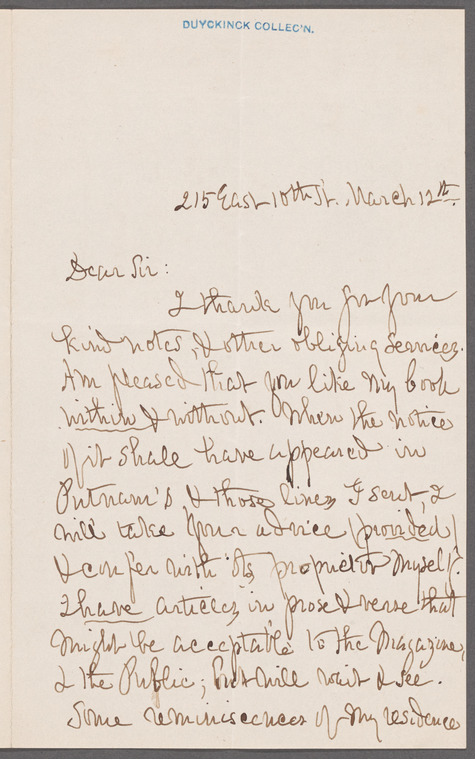 DUYCKINCK COLLEC'N.
215 East 10th St. March 12th.
Dear Sir:
I thank you for your
kind notes, & other obliging services.
Am pleased that you like my book
within & without. When the notice
of it shall have appeared in
Putnam's & those lines I sent, I
will take your advice (provided)
& confer with its proprietor myself.
I have articles, in prose & verse that
might be acceptable to the Magazine,
& the Public; but will wait & see.
Some reminiscences of my residence